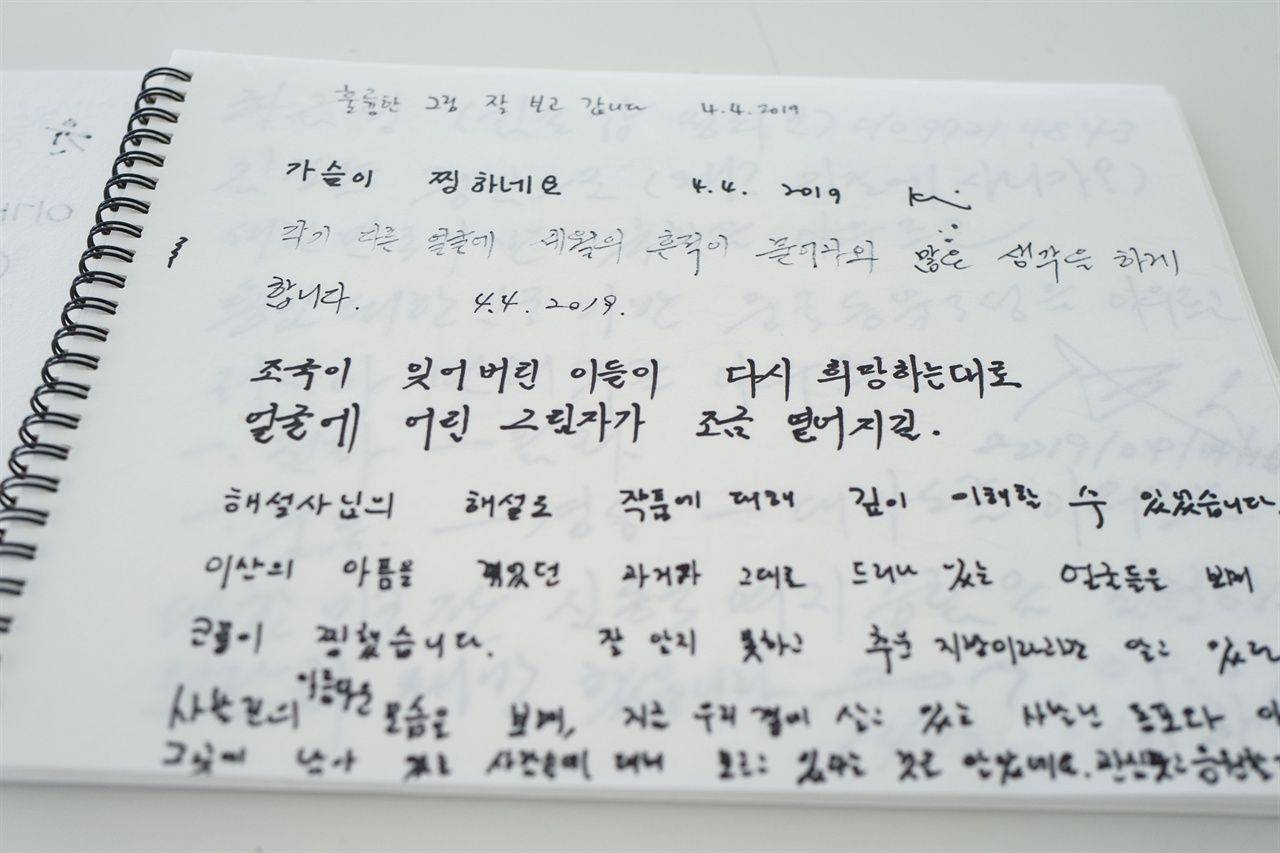 훌륭한 그림 잘 보고 갑니다 4.4.2019
가슴이 찡하네요 4.4. 2019
각기 다른 얼굴에 세월의 흔적이 묻어나와 많은 생각을 하게
합니다. 4.4. 2019.
조국이 잊어버린 이들이 다시 희망하는대로
얼굴에 어린 그림자가 조금 옅어지길.
해설사님의 해설로 작품에 대해 깊이 이해할 수 있었습니다.
이산의 아픔을 겪었던 과거가 그대로 드러나 있는 얼굴들을 보며
코끝이 찡했습니다. 잘 알지 못하고 추운 지방이라고만 알고 있던
사할린의 아름다운 모습을 보며, 지금 우리 곁에 살고 있는 사할린 동포와
그곳에 남아 있는 사람들에 대해 모르고 있다는 것을 알았네요.